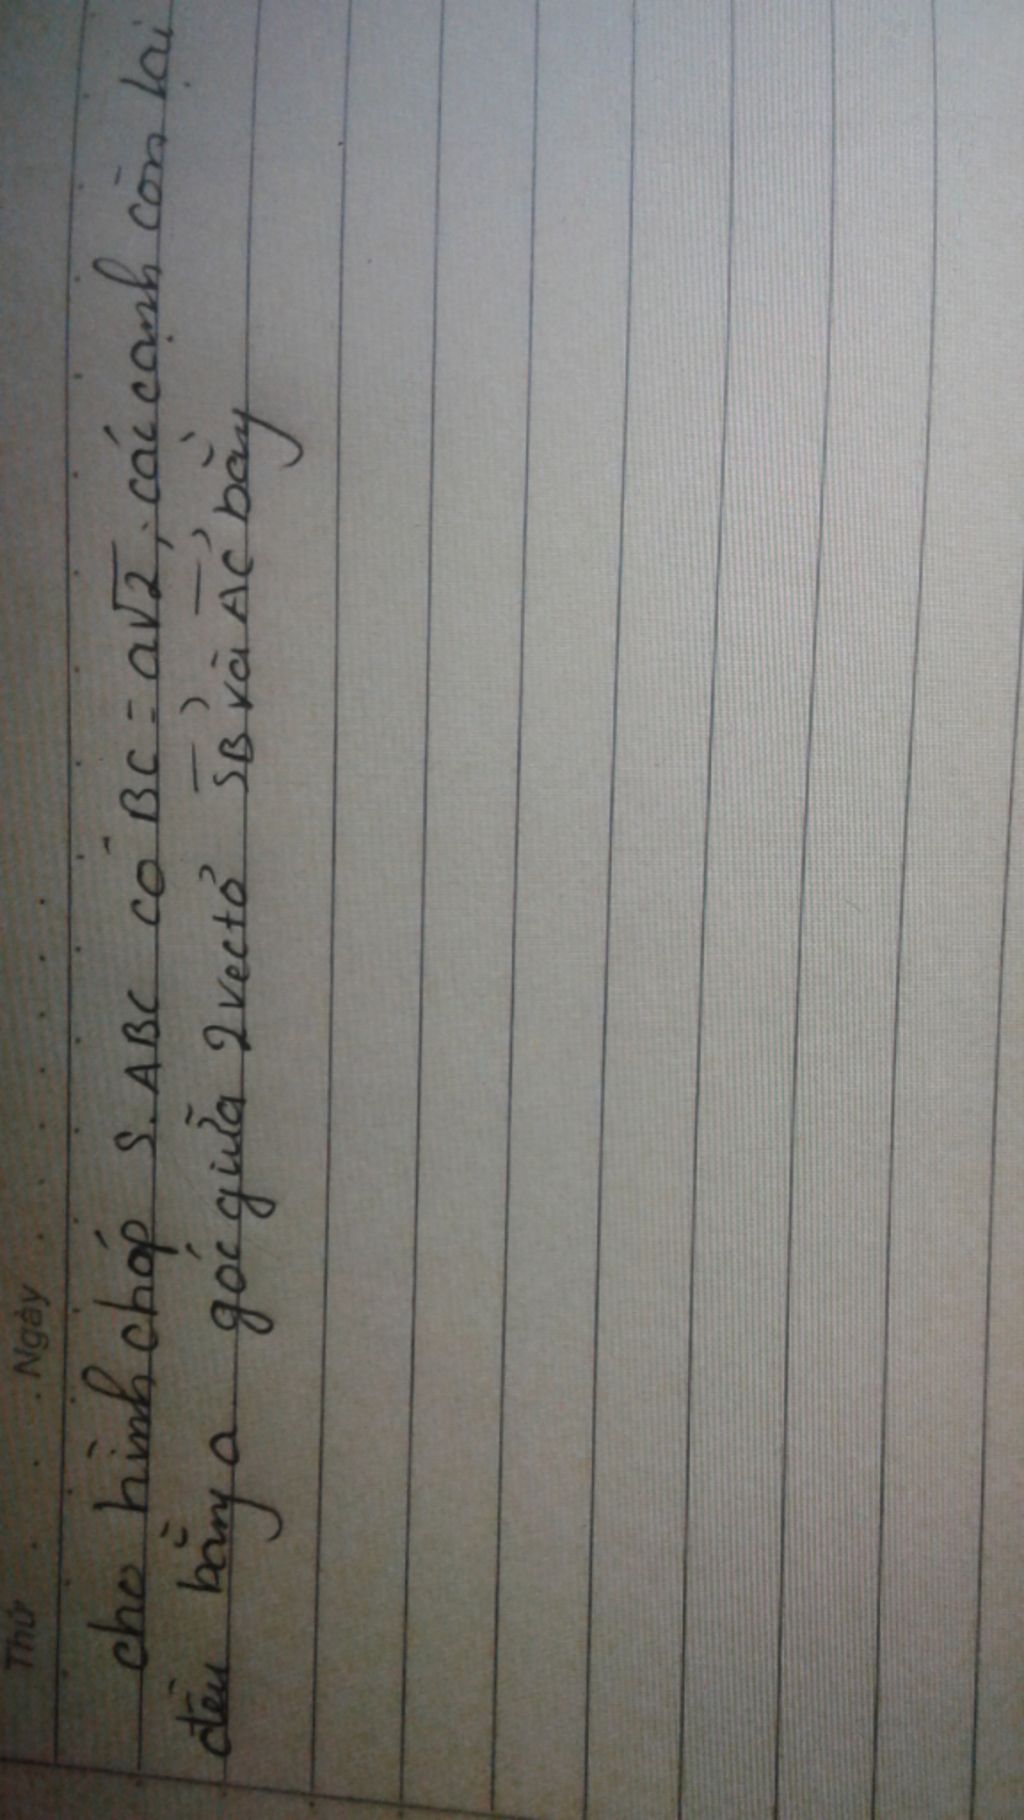 Thứ . . . . Ngày . . . . . . . . .
cho hình chóp S.ABC có BC = a√2, các cạnh còn lại
đều bằng a góc giữa 2 vectơ SB và AC bằng